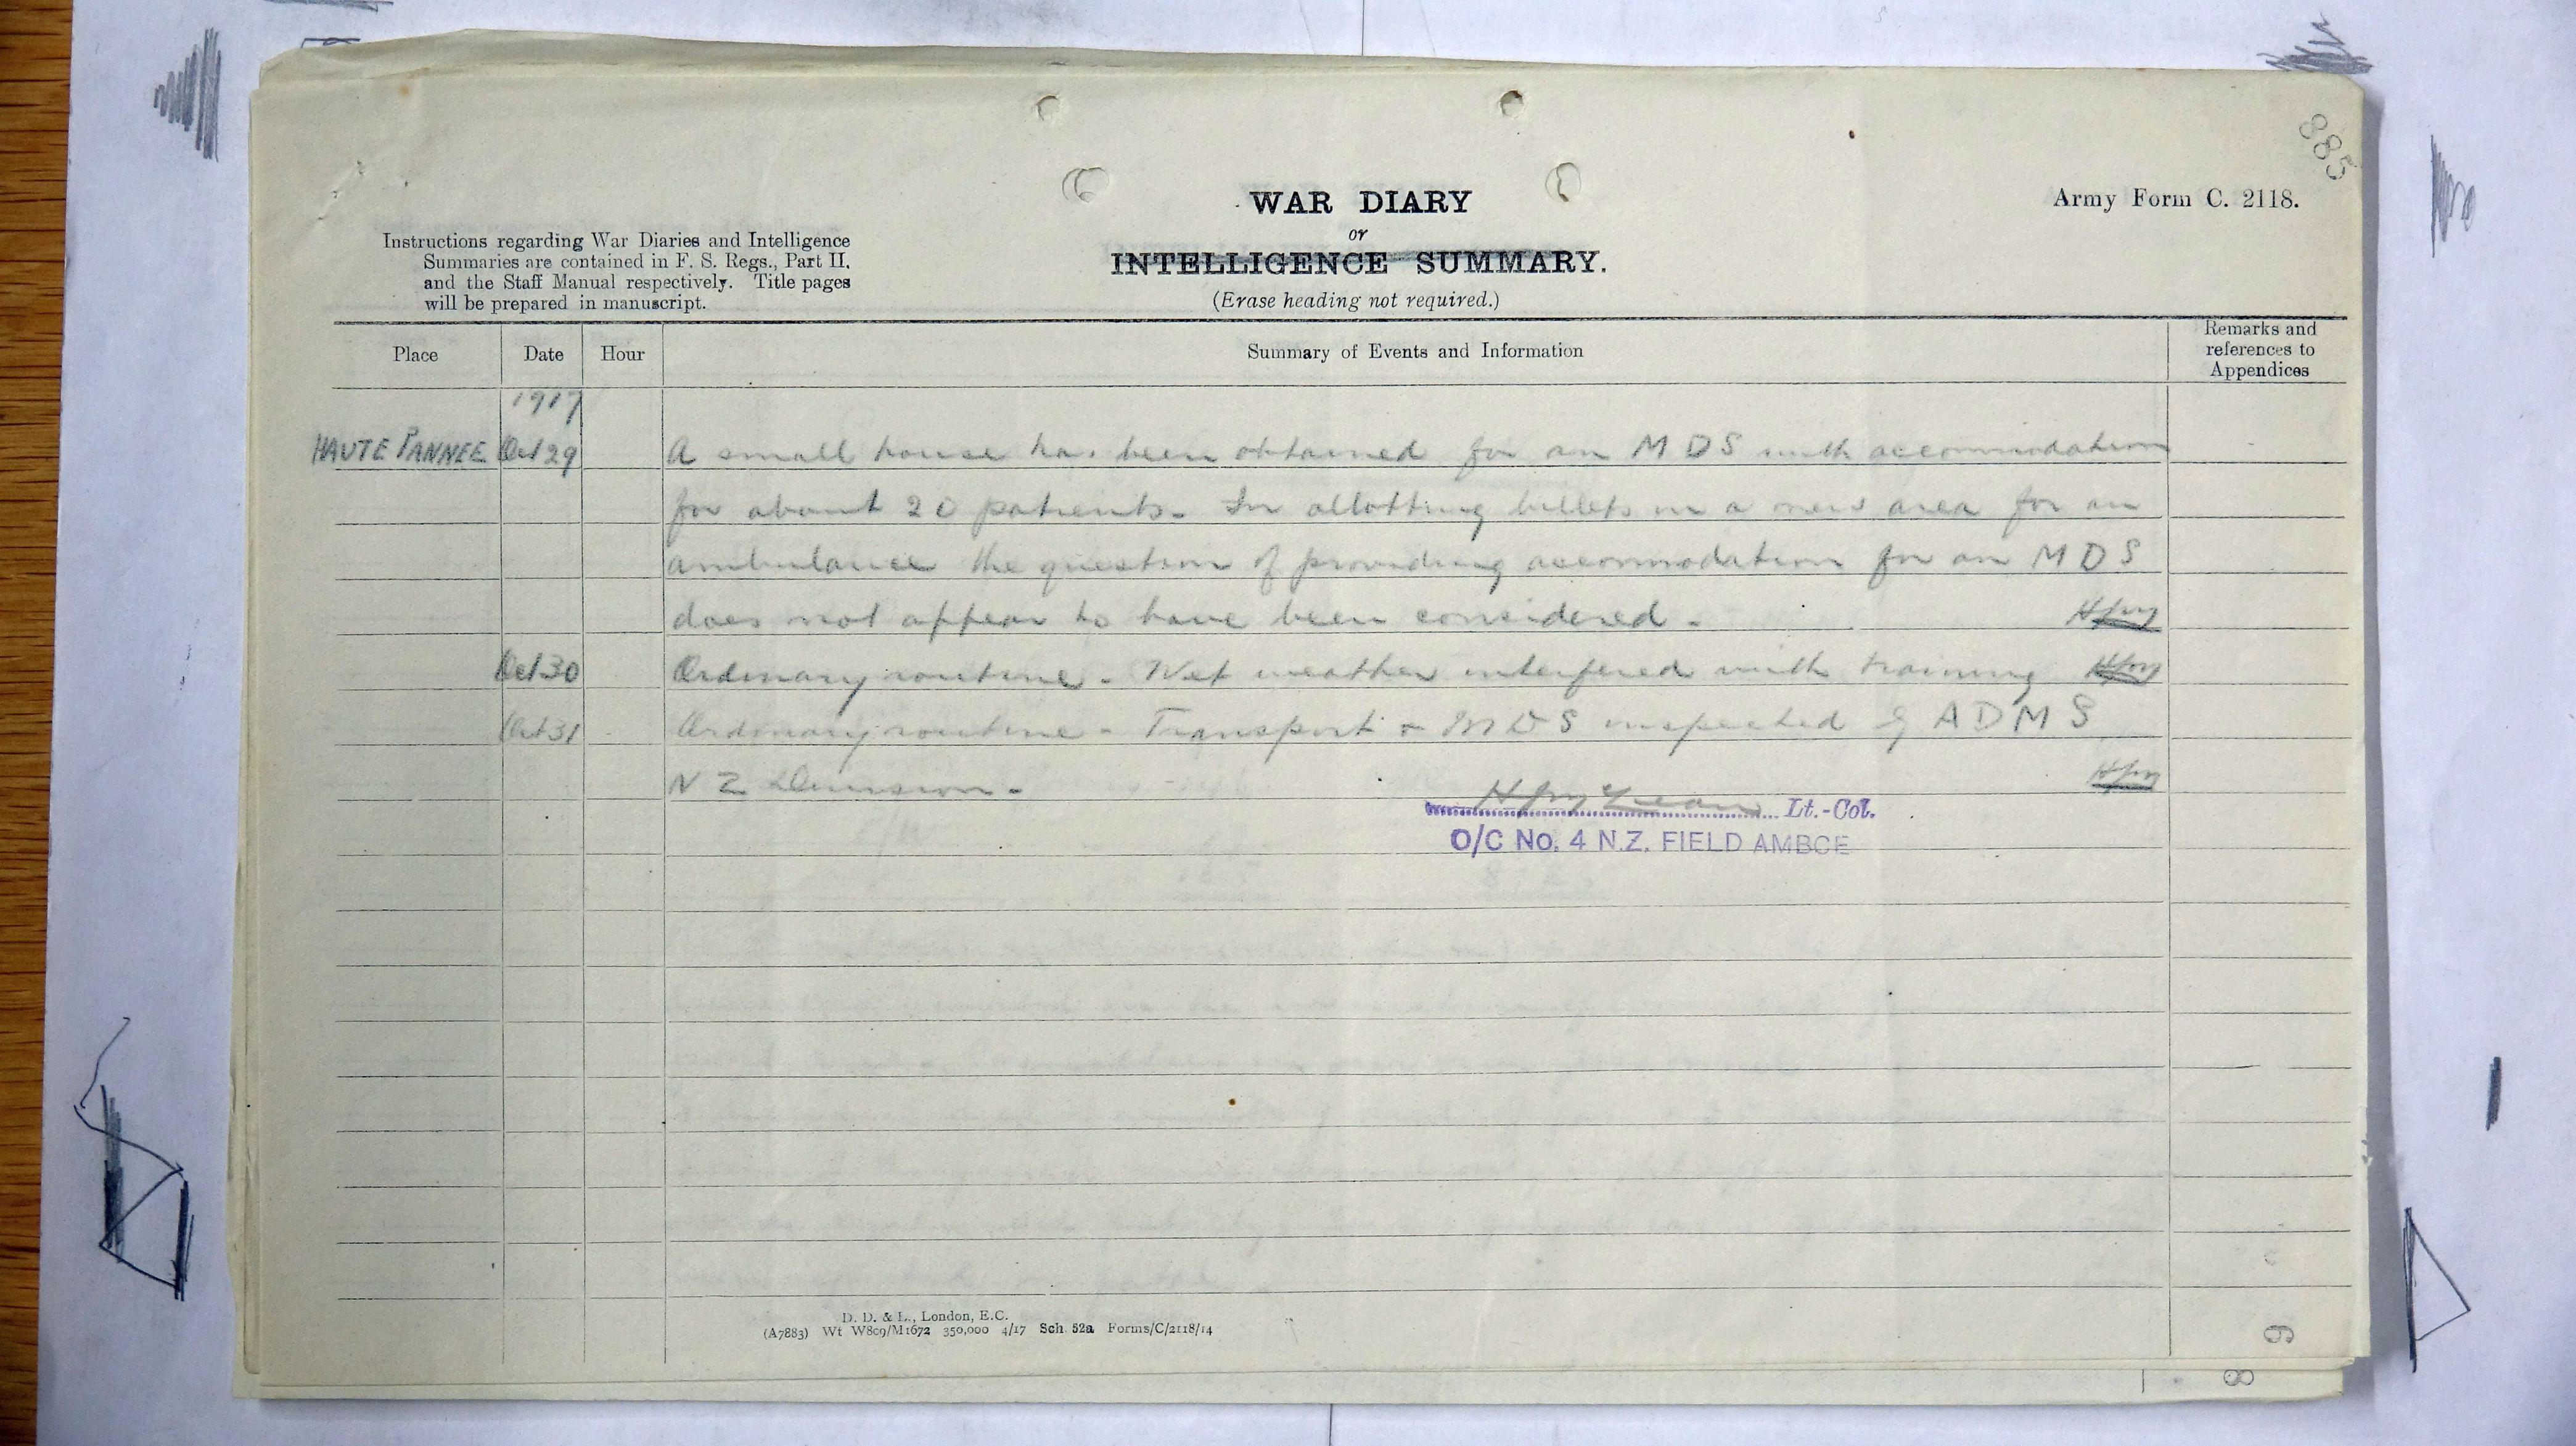 885
WAR DIARY
or
INTELLIGENCE SUMMARY.
(Erase heading not required.)
Army Form C. 2118.
Instructions regarding War Diaries and Intelligence
Summaries are contained in F. S. Regs., Part II.
and the Staff Manual respectively. Title pages
will be prepared in manuscript.
Place Date Hour Summary of Events and Information Remarks and
references to
Appendices
1917
HAUTE PANNEE Oct 29 A small house has been obtained for an M D S with accommodation
for about 20 patients. In allotting billets in a new area for an
ambulance the question of providing accommodation for an M D S
does not appear to have been considered.
Oct 30 Ordinary routine. Wet weather interfered with training
Oct 31 Ordinary routine - Transport & M D S inspected by A D M S
N Z Division.
Lt.-Col.
O/C No. 4 N.Z. FIELD AMBCE
D. D. & L., London, E.C.
(A7883) Wt W809/M1672 350,000 4/17 Sch. 52a Forms/C/2118/14
6
8